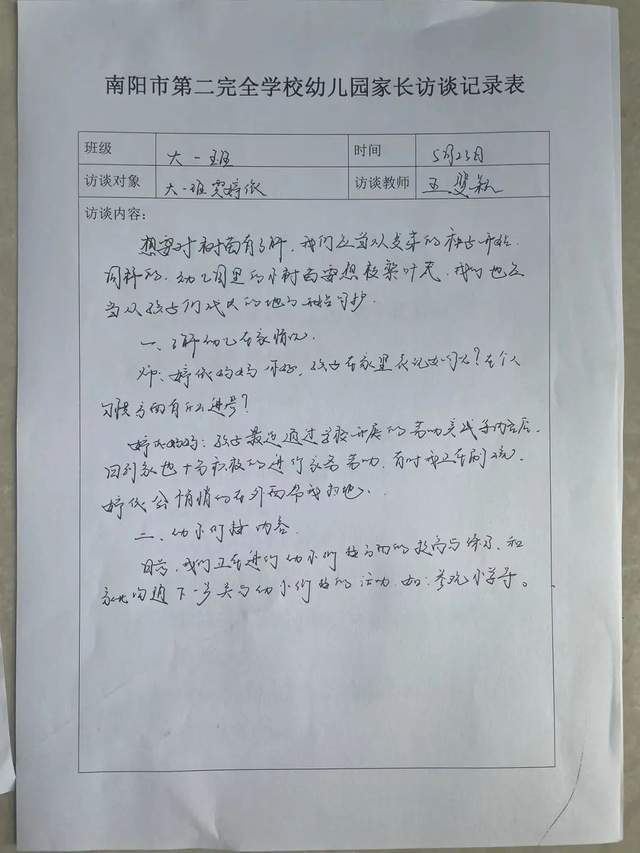 南阳市第二完全学校幼儿园家长访谈记录表
班级 大一班 时间 5月23日
访谈对象 大一班贾婷依 访谈教师 王
访谈内容：
想要对树苗有了解，我们应当从发芽的种子开始
同样的，幼儿园里的小树苗要想枝繁叶茂，我们也应
当从孩子们成长的地方开始守护。
一、了解幼儿在家情况
师：婷依妈妈你好，孩子在家里表现如何？在个人
习惯方面有何进步？
婷依妈妈：孩子最近通过学校开展的劳动实践活动后，
回到家也十分积极的进行家务劳动，有时我正在刷碗，
婷依会悄悄的在外面帮我扫地。
二、幼小衔接内容
目前，我们正在进行幼小衔接方面的提高与练习，和
家长沟通下一步关于幼小衔接的活动，如：参观小学等。